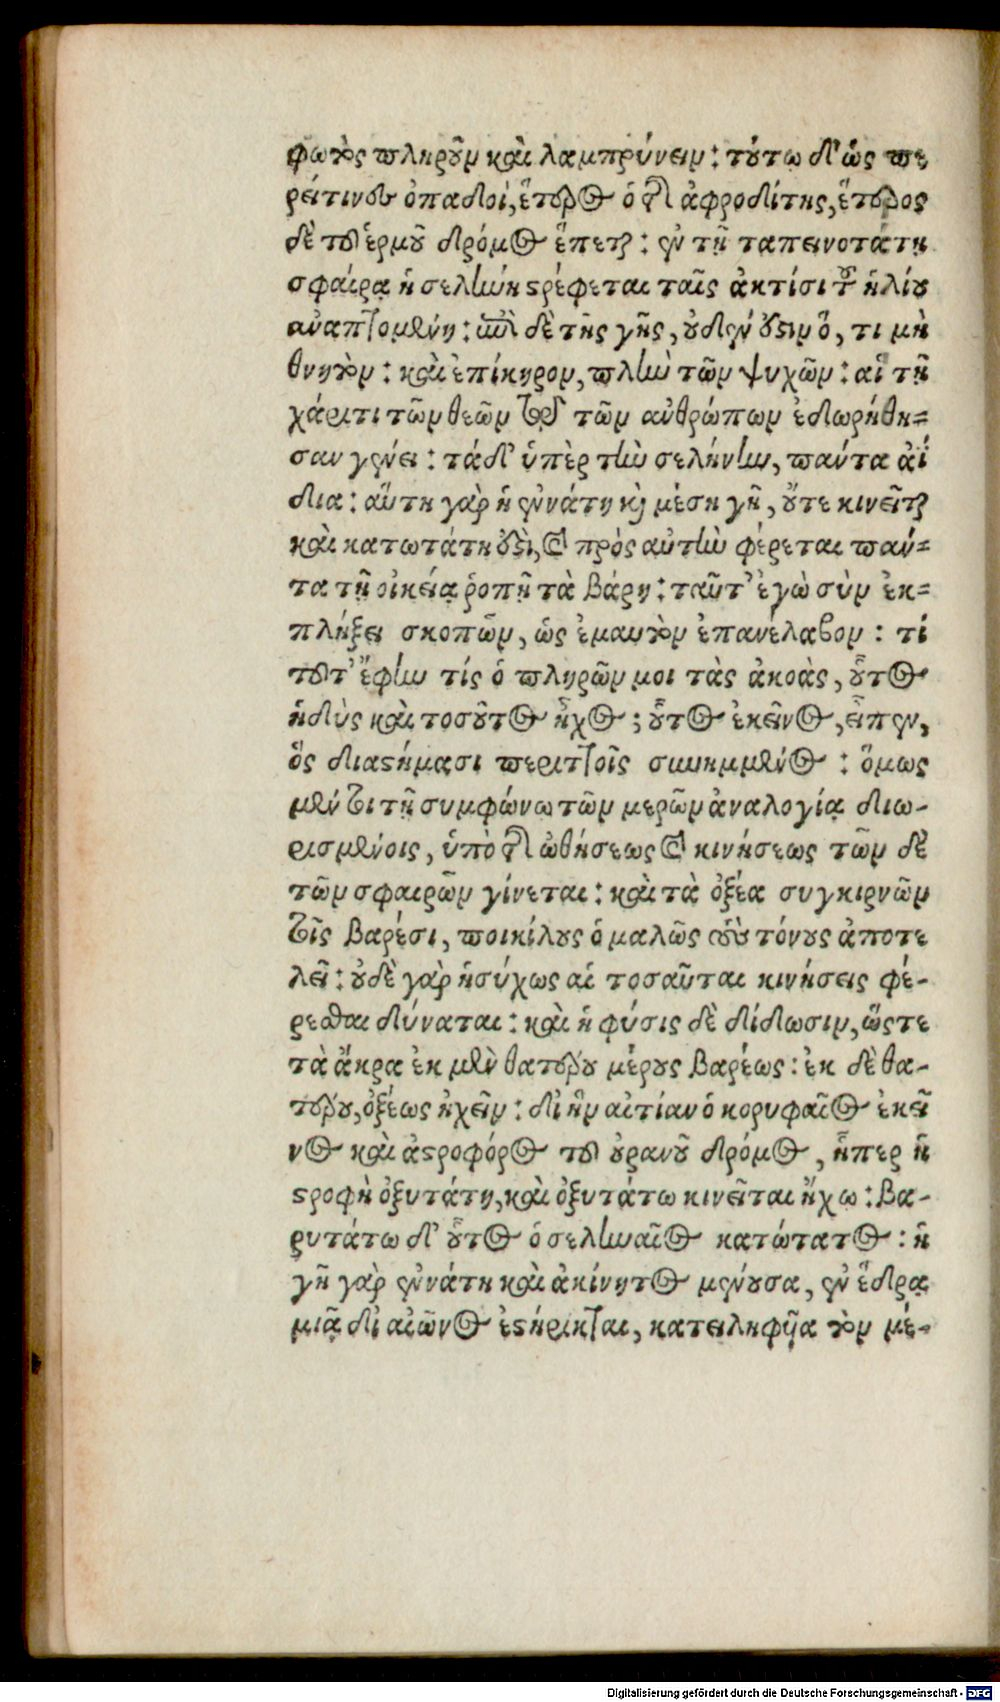 φωτὸς πληροῦν καὶ λαμπρύνειν: τούτω δ' ὡς ὥσπε
ρεί τινες ὀπαδοὶ, ἕτερος ὁ τῆς ἀφροδίτης, ἕτερος
δὲ τοῦ ἑρμοῦ δρόμος ἕπεται: ἐν τῇ ταπεινοτάτῃ
σφαίρᾳ ἡ σελήνη στρέφεται ταῖς ἀκτίσι τοῦ ἡλίου
ἀναπτομένη: ὑπὸ δὲ τῆς γῆς, οὐδέν ἐστιν ὅ, τι μὴ
θνητὸν: καὶ ἐπίκηρον, πλὴν τῶν ψυχῶν: αἳ τῇ
χάριτι τῶν θεῶν τῷ τῶν ἀνθρώπων ἐδωρήθη=
σαν γένει: τὰ δ' ὑπὲρ τὴν σελήνην, πάντα ἀΐ
δια: αὕτη γὰρ ἡ ἐννάτη καὶ μέση γῆ, οὔτε κινεῖται
καὶ κατωτάτη ἐστὶ, καὶ πρὸς αὐτὴν φέρεται πάν=
τα τῇ οἰκείᾳ ῥοπῇ τὰ βάρη: ταῦτ' ἐγὼ σὺν ἐκ=
πλήξει σκοπῶν, ὡς ἐμαυτὸν ἐπανέλαβον: τί
τοῦτ' ἔφην τίς ὁ πληρῶν μοι τὰς ἀκοὰς, οὗτος
ἡδὺς καὶ τοσοῦτος ἦχος; οὗτος ἐκεῖνος, εἶπεν,
ὃς διαστήμασι περιττοῖς συνημμένος: ὅμως
μέντοι τῇ συμφώνω τῶν μερῶν ἀναλογίᾳ διω-
ρισμένοις, ὑπὸ τῆς ὠθήσεως καὶ κινήσεως τῶν δὲ
τῶν σφαιρῶν γίνεται: καὶ τὰ ὀξέα συγκιρνῶν
τοῖς βαρέσι, ποικίλους ὁμαλῶς τοὺς τόνους ἀποτε
λεῖ: οὐδὲ γὰρ ἡσύχως αἱ τοσαῦται κινήσεις φέ-
ρεσθαι δύναται: καὶ ἡ φύσις δὲ δίδωσιν, ὥστε
τὰ ἄκρα ἐκ μὲν θατέρου μέρους βαρέως: ἐκ δὲ θα-
τέρου, ὀξέως ἠχεῖν: δι' ἣν αἰτίαν ὁ κορυφαῖος ἐκεῖ
νος καὶ ἀστροφόρος τοῦ οὐρανοῦ δρόμος, ἧπερ ἡ
στροφὴ ὀξυτάτη, καὶ ὀξυτάτω κινεῖται ἤχω: βα-
ρυτάτω δ' οὗτος ὁ σεληναῖος κατώτατος: ἡ
γῆ γὰρ ἐννάτη καὶ ἀκίνητος μένουσα, ἐν ἕδρᾳ
μιᾷ δι' αἰῶνος ἐστήρικται, κατειληφῆα τὸν μέ-
Digitalisierung gefördert durch die Deutsche Forschungsgemeinschaft - DFG